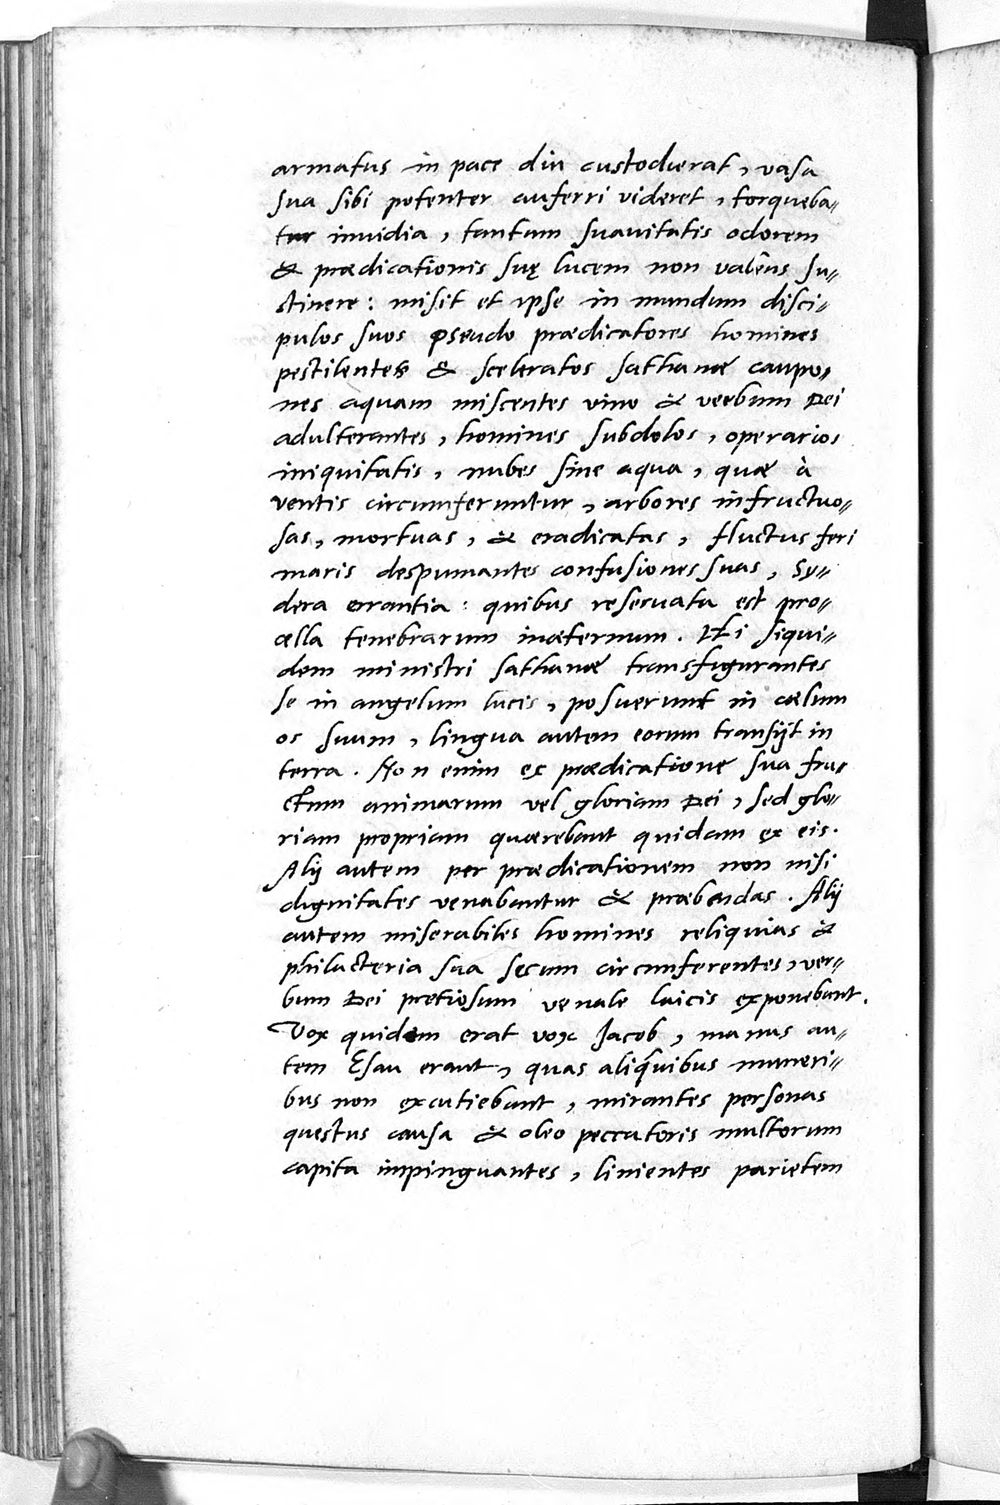 armatus in pace diu custodierat, vasa
sua sibi potenter auferri videret, torqueba〃
tur invidia, tantum suavitatis odorem
& prædicationis suę lucem non valens su〃
stinere: misit et ipse in mundum disci〃
pulos suos pseudo prædicatores homines
pestilentes & sceleratos sathanæ caupo〃
nes aquam miscentes vino & verbum Dei
adulterantes, homines subdolos, operarios
iniquitatis, nubes sine aqua, quæ à
ventis circumferuntur, arbores infructuo〃
sas, mortuas, & eradicatas, fluctus feri
maris despumantes confusiones suas, sy〃
dera errantia: quibus reservata est pro〃
cella tenebrarum inæternum. Hi siqui〃
dem ministri sathanæ transfigurantes
se in angelum lucis, posuerunt in cælum
os suum, lingua autem eorum transijt in
terra. Non enim ex prædicatione sua fru〃
ctum animarum vel gloriam Dei, sed glo〃
riam propriam quærebant quidam ex eis.
Alij autem per prædicationem non nisi
dignitates venabantur & præbendas. Alij
autem miserabiles homines reliquias &
philacteria sua secum circumferentes, ver〃
bum Dei pretiosum venale laicis exponebant.
Vox quidem erat vox Jacob, manus au〃
tem Esau erant, quas aliquibus muneri〃
bus non excutiebant, mirantes personas
questus causa & oleo peccatoris multorum
capita impinguantes, linientes parietem